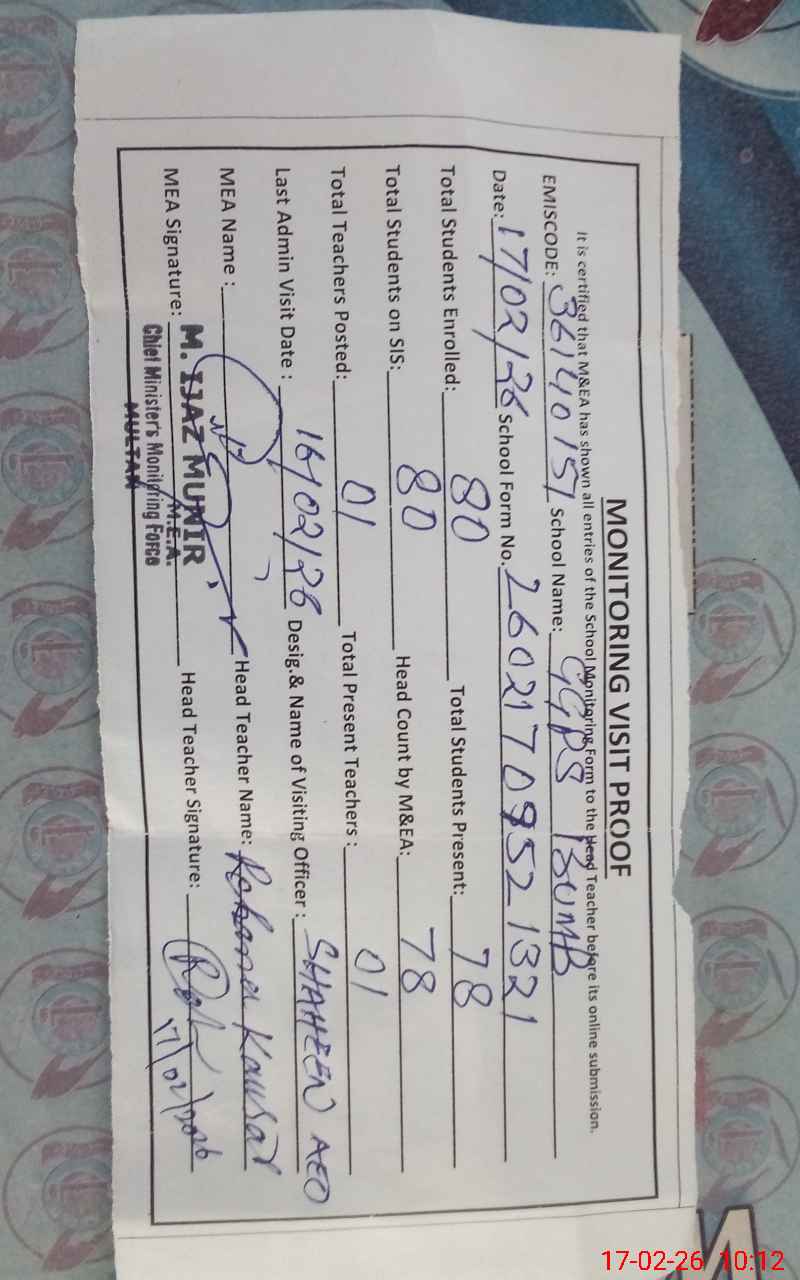 MONITORING VISIT PROOF
It is certified that M&EA has shown all entries of the School Monitoring Form to the Head Teacher before its online submission.
EMISCODE: 36140151 School Name: GGPS BUMB
Date: 17/02/26 School Form No. 26021709521321
Total Students Enrolled: 80 Total Students Present: 78
Total Students on SIS: 80 Head Count by M&EA: 78
Total Teachers Posted: 01 Total Present Teachers: 01
Last Admin Visit Date : 16/02/26 Desig.& Name of Visiting Officer : SHAHEEN AEO
MEA Name : Head Teacher Name: Rehana Kausar
MEA Signature: Head Teacher Signature: 17/02/2026
M. IJAZ MUNIR
M.E.A.
Chief Minister's Monitoring Force
MULTAN
17-02-26 10:12